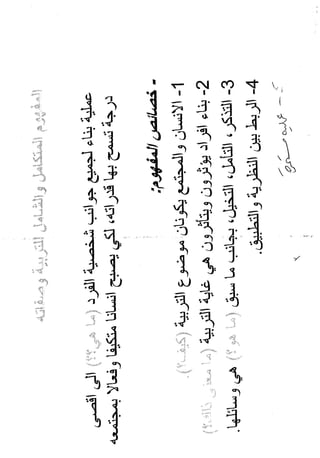 المفهوم المتكامل والشامل للتربية وصفاته
عملية بناء لجميع جوانب شخصية الفرد (ما هي؟؟) الى اقصى
درجة تسمح بها قدراته، لكي يصبح انسانا متكيفا وفعالا بمجتمعه
- خصائص المفهوم:
1- الانسان والمجتمع يكونان موضوع التربية (كيف؟).
2- بناء افراد يؤثرون ويتأثرون هي غاية التربية (ما معنى ذلك؟)
3- التذكر، التأمل، التخيل، بجانب ما سبق (ما هو؟) هي وسائلها.
4- الربط بين النظرية والتطبيق.
5- عملية مستمرة